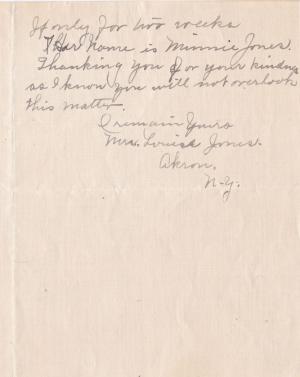 If only for two weeks
Her Name is Minnie Jones.
Thanking you for your kindness
as I know you will not overlook
this matter.
I remain Yours
Mrs. Louisa Jones.
Akron.
N-Y.